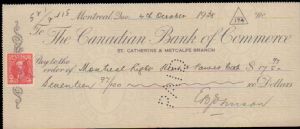 Montreal Que. 4th October 1938
To The Canadian Bank of Commerce
ST. CATHERINE & METCALFE BRANCH
Pay to the
order of Montreal Light Heat & Power Cons $ 17.97
Seventeen 97/100 Dollars
PAID